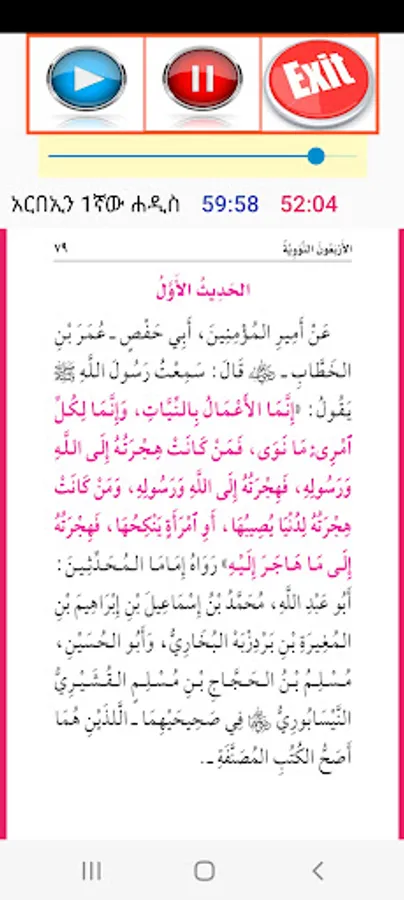 Exit
አርበኢን 1ኛው ሐዲስ 59:58 52:04
الأَرْبَعُونَ النَّوَوِيَّةُ ٧٩
الحَدِيثُ الأَوَّلُ
عَنْ أَمِيرِ المُؤْمِنِينَ، أَبِي حَفْصٍ ـ عُمَرَ بْنِ
الخَطَّابِ ـ رضي الله عنه قَالَ: سَمِعْتُ رَسُولَ اللَّهِ ﷺ
يَقُولُ: «إِنَّمَا الأَعْمَالُ بِالنِّيَّاتِ، وَإِنَّمَا لِكُلِّ
ٱمْرِئٍ مَا نَوَى، فَمَنْ كَانَتْ هِجْرَتُهُ إِلَى اللَّهِ
وَرَسُولِهِ، فَهِجْرَتُهُ إِلَى اللَّهِ وَرَسُولِهِ، وَمَنْ كَانَتْ
هِجْرَتُهُ لِدُنْيَا يُصِيبُهَا، أَوِ ٱمْرَأَةٍ يَنْكِحُهَا، فَهِجْرَتُهُ
إِلَى مَا هَاجَرَ إِلَيْهِ» رَوَاهُ إِمَامَا المُحَدِّثِينَ:
أَبُو عَبْدِ اللَّهِ، مُحَمَّدُ بْنُ إِسْمَاعِيلَ بْنِ إِبْرَاهِيمَ بْنِ
المُغِيرَةِ بْنِ بَرْدِزْبَهْ البُخَارِيُّ، وَأَبُو الحُسَيْنِ،
مُسْلِمُ بْنُ الحَجَّاجِ بْنِ مُسْلِمٍ القُشَيْرِيُّ
النَّيْسَابُورِيُّ رضي الله عنهما فِي صَحِيحَيْهِمَا ـ اللَّذَيْنِ هُمَا
أَصَحُّ الكُتُبِ المُصَنَّفَةِ ـ.